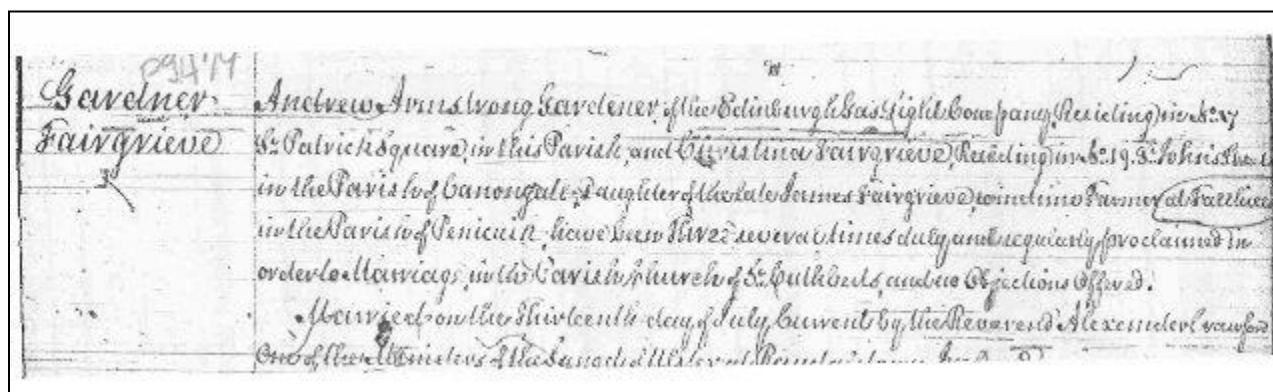 P94'14
Gardner
Fairgrieve
Andrew Armstrong Gardener, of the Edinburgh Gas Light Company, Residing in No. 17
St. Patrick Square, in this Parish, and Christina Fairgrieve, Residing in No. 19. St. John's Street
in the Parish of Canongate, Daughter of the late James Fairgrieve, sometime Farmer at
in the Parish of Penicuik, have been three several times duly and regularly proclaimed in
order to Marriage, in the Parish Church of St. Cuthberts, and no Objections Offered.
Married on the Thirteenth day of July Current by the Reverend Alexander Crawford
One of the Ministers of the